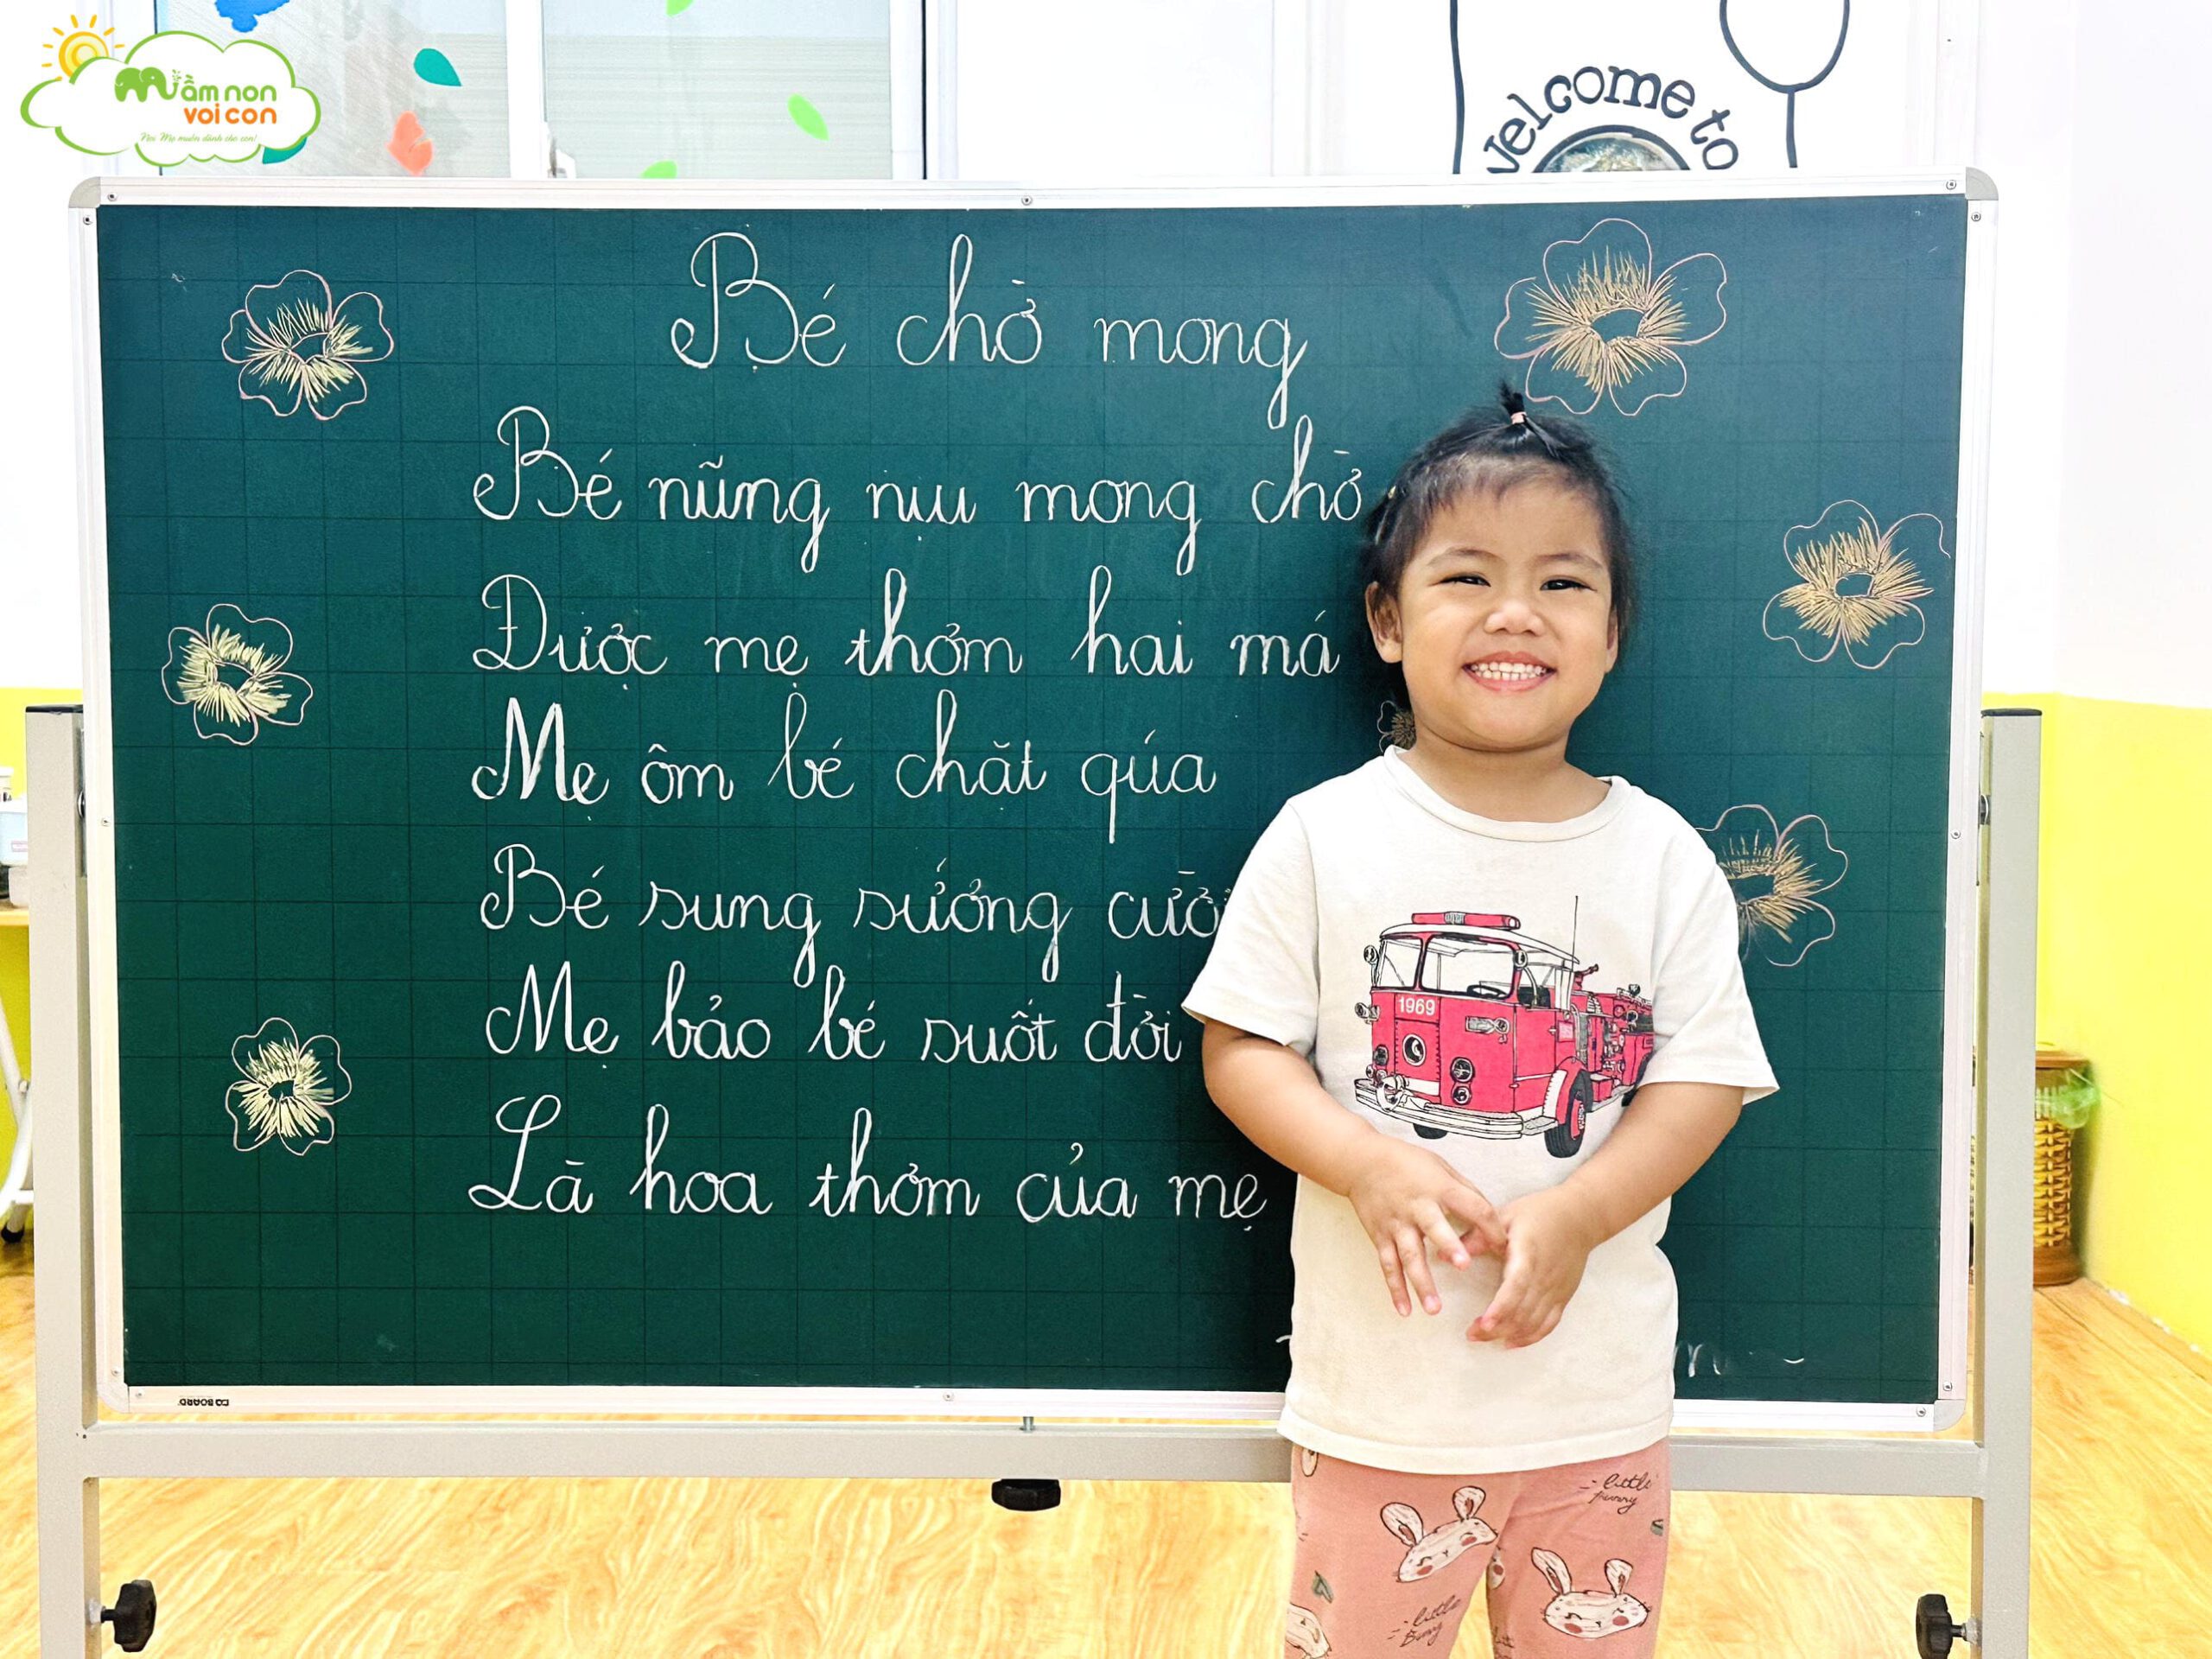 Mầm non
voi con
Nơi Mẹ muốn dành cho con!
welcome to
Bé chờ mong
Bé nũng nịu mong chờ
Được mẹ thơm hai má
Mẹ ôm bé chặt qúa
Bé sung sướng cười
Mẹ bảo bé suốt đời
Là hoa thơm của mẹ
1969
BOARD
little
bunny
little
Bunny